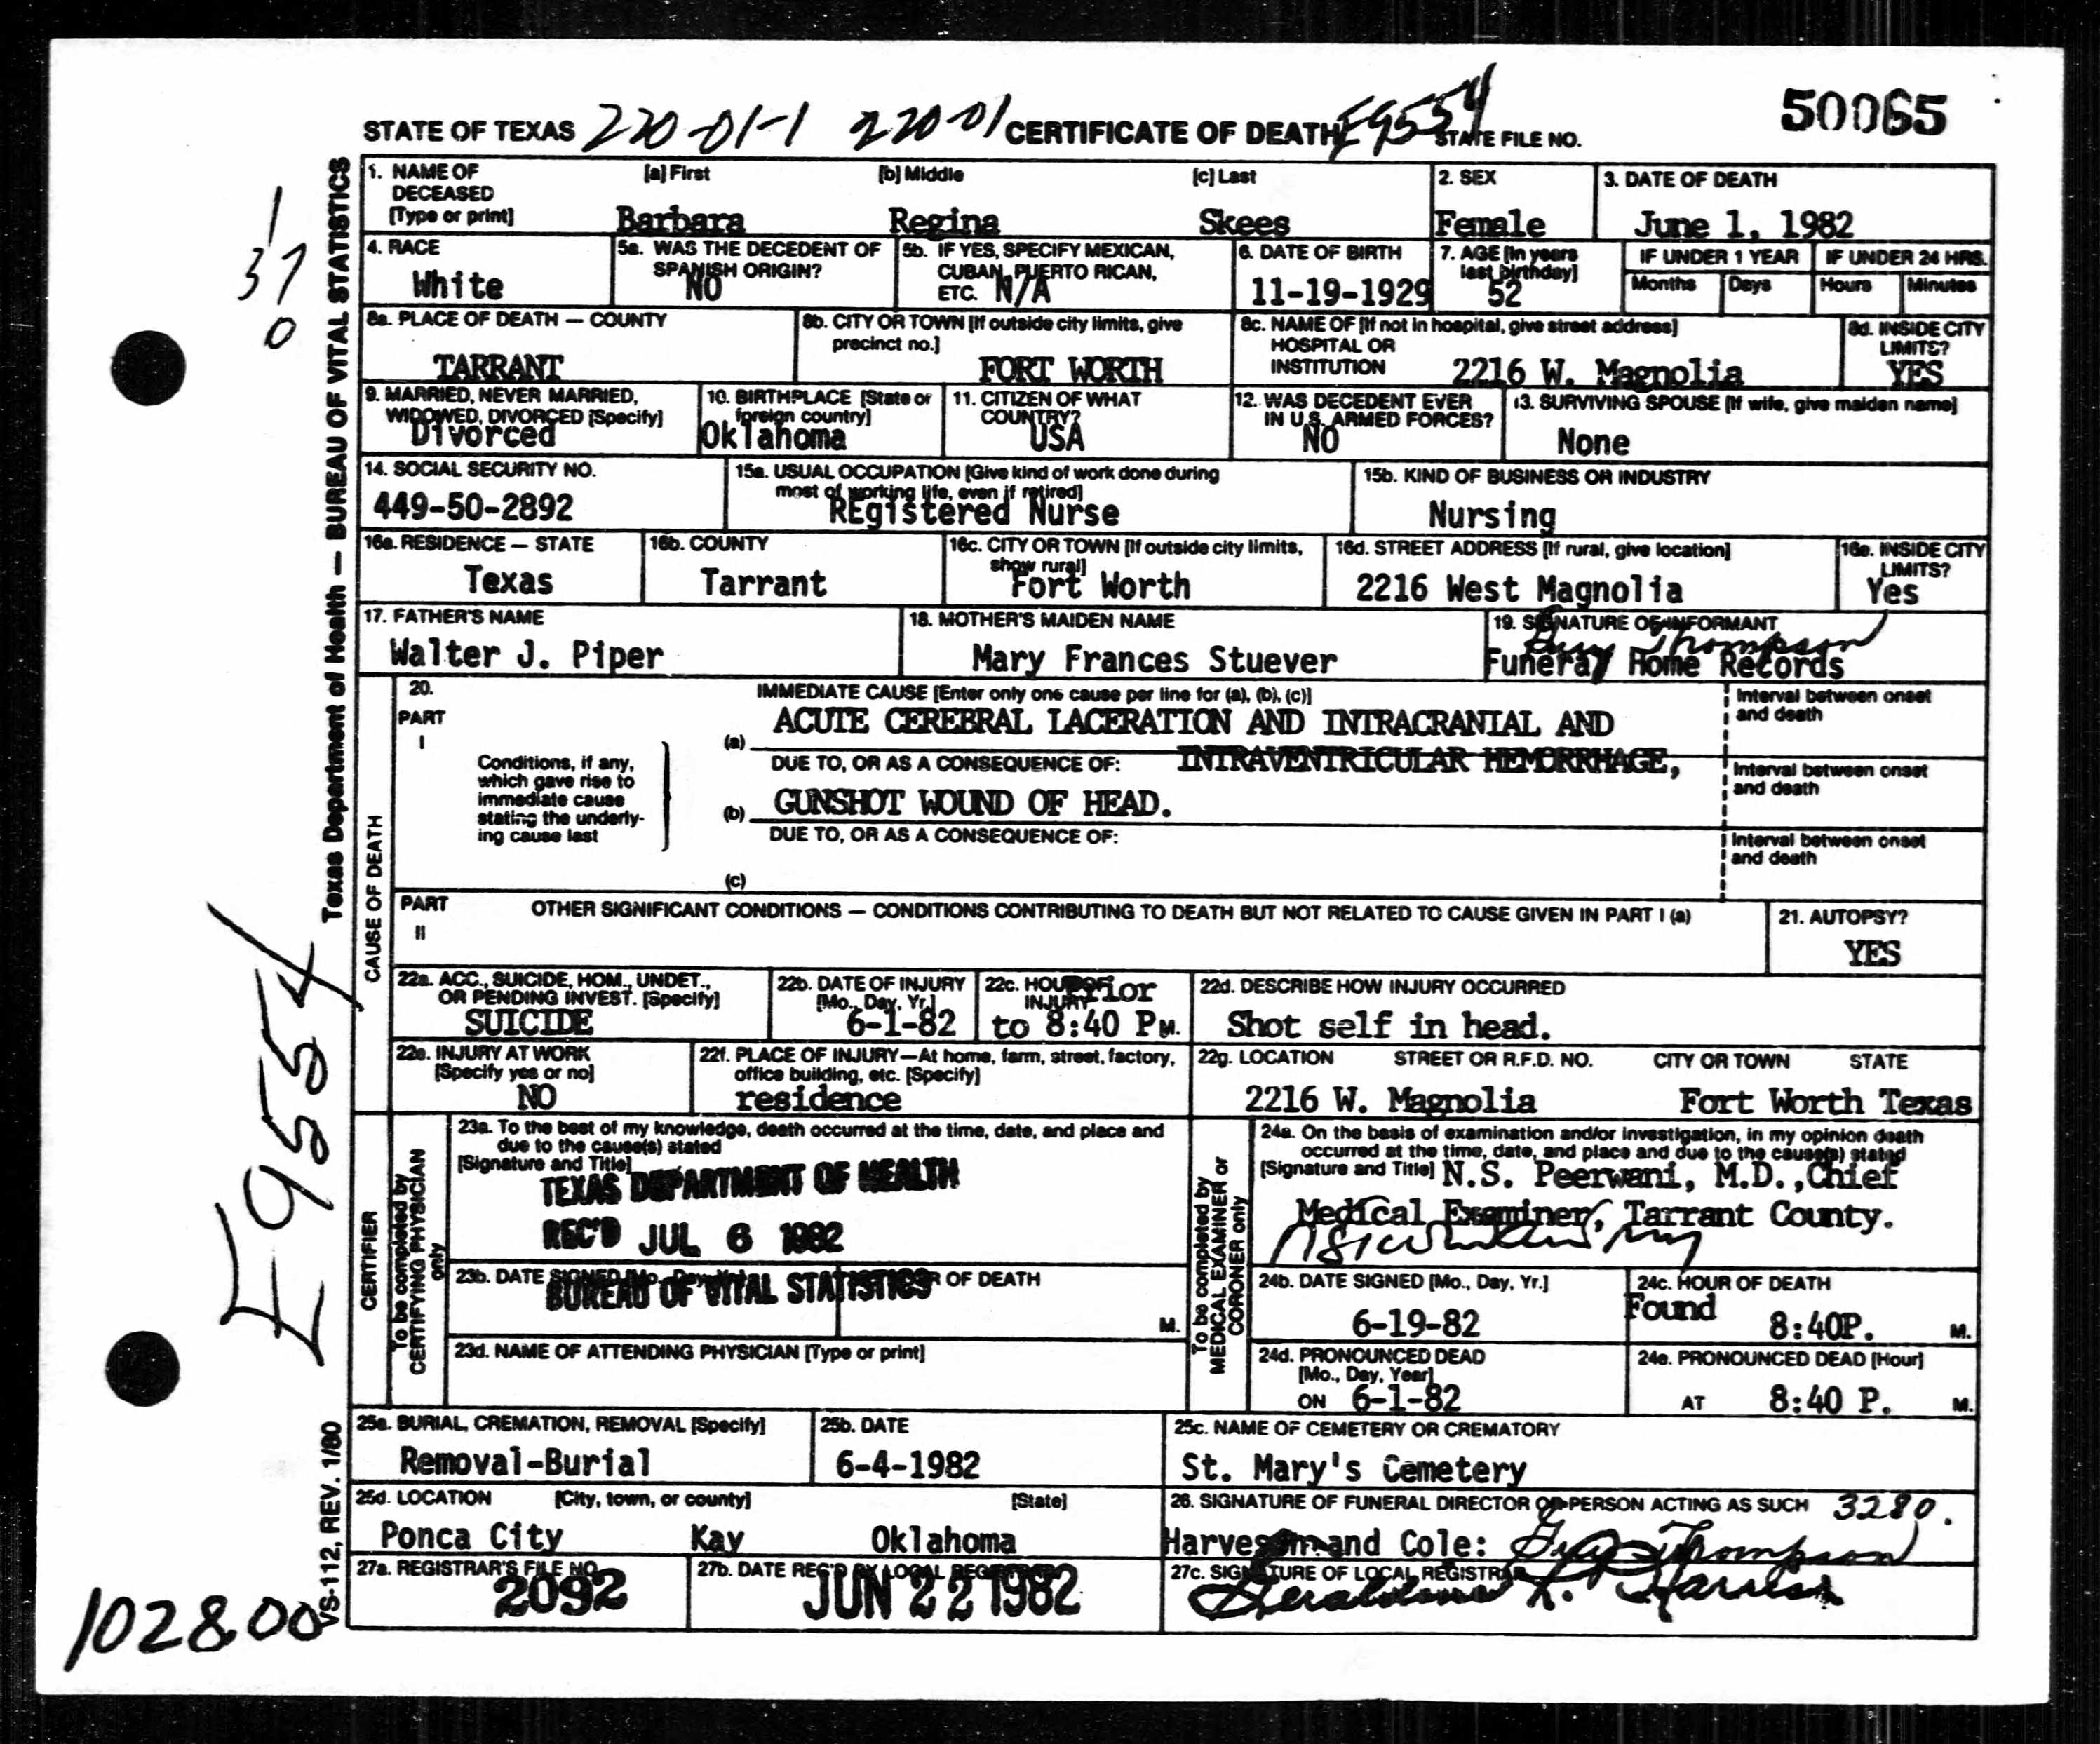 50065
STATE OF TEXAS 220-01-1 220-01 CERTIFICATE OF DEATH E9554 STATE FILE NO.
Texas Department of Health — BUREAU OF VITAL STATISTICS
1
37
0
1. NAME OF DECEASED [Type or print] [a] First [b] Middle [c] Last
Barbara Regina Skees
2. SEX
Female
3. DATE OF DEATH
June 1, 1982
4. RACE
White
5a. WAS THE DECEDENT OF SPANISH ORIGIN?
NO
5b. IF YES, SPECIFY MEXICAN, CUBAN, PUERTO RICAN, ETC. N/A
6. DATE OF BIRTH
11-19-1929
7. AGE [In years last birthday]
52
IF UNDER 1 YEAR
Months Days
IF UNDER 24 HRS.
Hours Minutes
8a. PLACE OF DEATH — COUNTY
TARRANT
8b. CITY OR TOWN [If outside city limits, give precinct no.]
FORT WORTH
8c. NAME OF [If not in hospital, give street address] HOSPITAL OR INSTITUTION
2216 W. Magnolia
8d. INSIDE CITY LIMITS?
YES
9. MARRIED, NEVER MARRIED, WIDOWED, DIVORCED [Specify]
Divorced
10. BIRTHPLACE [State or foreign country]
Oklahoma
11. CITIZEN OF WHAT COUNTRY?
USA
12. WAS DECEDENT EVER IN U.S. ARMED FORCES?
NO
13. SURVIVING SPOUSE [If wife, give maiden name]
None
14. SOCIAL SECURITY NO.
449-50-2892
15a. USUAL OCCUPATION [Give kind of work done during most of working life, even if retired]
REgistered Nurse
15b. KIND OF BUSINESS OR INDUSTRY
Nursing
16a. RESIDENCE — STATE
Texas
16b. COUNTY
Tarrant
16c. CITY OR TOWN [If outside city limits, show rural]
Fort Worth
16d. STREET ADDRESS [If rural, give location]
2216 West Magnolia
16e. INSIDE CITY LIMITS?
Yes
17. FATHER'S NAME
Walter J. Piper
18. MOTHER'S MAIDEN NAME
Mary Frances Stuever
19. SIGNATURE OF INFORMANT
Thompson
Funeral Home Records
CAUSE OF DEATH
20.
PART I
IMMEDIATE CAUSE [Enter only one cause per line for (a), (b), (c)]
Interval between onset and death
Conditions, if any, which gave rise to immediate cause stating the underlying cause last
(a) ACUTE CEREBRAL LACERATION AND INTRACRANIAL AND
DUE TO, OR AS A CONSEQUENCE OF: INTRAVENTRICULAR HEMORRHAGE,
Interval between onset and death
(b) GUNSHOT WOUND OF HEAD.
DUE TO, OR AS A CONSEQUENCE OF:
Interval between onset and death
(c)
PART II OTHER SIGNIFICANT CONDITIONS — CONDITIONS CONTRIBUTING TO DEATH BUT NOT RELATED TO CAUSE GIVEN IN PART I (a)
21. AUTOPSY?
YES
22a. ACC., SUICIDE, HOM., UNDET., OR PENDING INVEST. [Specify]
SUICIDE
22b. DATE OF INJURY [Mo., Day, Yr.]
6-1-82
22c. HOUR OF INJURY
Prior to 8:40 P M.
22d. DESCRIBE HOW INJURY OCCURRED
Shot self in head.
22e. INJURY AT WORK [Specify yes or no]
NO
22f. PLACE OF INJURY—At home, farm, street, factory, office building, etc. [Specify]
residence
22g. LOCATION STREET OR R.F.D. NO. CITY OR TOWN STATE
2216 W. Magnolia Fort Worth Texas
CERTIFIER
To be completed by CERTIFYING PHYSICIAN only
23a. To the best of my knowledge, death occurred at the time, date, and place and due to the cause(s) stated
[Signature and Title]
TEXAS DEPARTMENT OF HEALTH
REC'D JUL 6 1982
BUREAU OF VITAL STATISTICS
23b. DATE SIGNED [Mo., Day, Yr.] OF DEATH
M.
23d. NAME OF ATTENDING PHYSICIAN [Type or print]
To be completed by MEDICAL EXAMINER or CORONER only
24a. On the basis of examination and/or investigation, in my opinion death occurred at the time, date, and place and due to the cause(s) stated
[Signature and Title] N.S. Peerwani, M.D.,Chief
Medical Examiner, Tarrant County.
24b. DATE SIGNED [Mo., Day, Yr.]
6-19-82
24c. HOUR OF DEATH
Found 8:40P. M.
24d. PRONOUNCED DEAD [Mo., Day, Year]
ON 6-1-82
24e. PRONOUNCED DEAD [Hour]
AT 8:40 P. M.
25a. BURIAL, CREMATION, REMOVAL [Specify]
Removal-Burial
25b. DATE
6-4-1982
25c. NAME OF CEMETERY OR CREMATORY
St. Mary's Cemetery
25d. LOCATION [City, town, or county] [State]
Ponca City Kay Oklahoma
26. SIGNATURE OF FUNERAL DIRECTOR OR PERSON ACTING AS SUCH 3280.
Harveson and Cole: Thompson
27a. REGISTRAR'S FILE NO.
2092
27b. DATE REC'D BY LOCAL REGISTRAR
JUN 22 1982
27c. SIGNATURE OF LOCAL REGISTRAR
Geraldine K. Harris
VS-112, REV. 1/80
E9554
102800